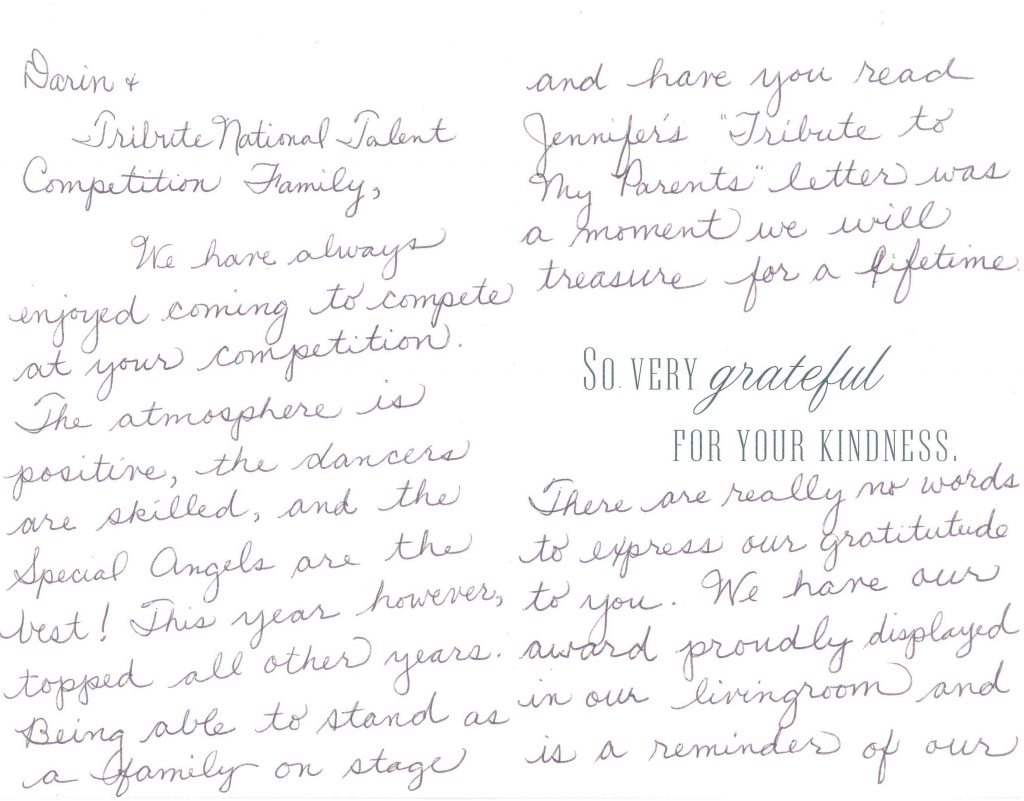 Darin &
Tribute National Talent
Competition Family,
We have always
enjoyed coming to compete
at your competition.
The atmosphere is
positive, the dancers
are skilled, and the
Special Angels are the
best! This year however,
topped all other years.
Being able to stand as
a family on stage
and have you read
Jennifer's "Tribute to
My Parents" letter was
a moment we will
treasure for a lifetime.
So very grateful
for your kindness.
There are really no words
to express our gratitutude
to you. We have our
award proudly displayed
in our livingroom and
is a reminder of our